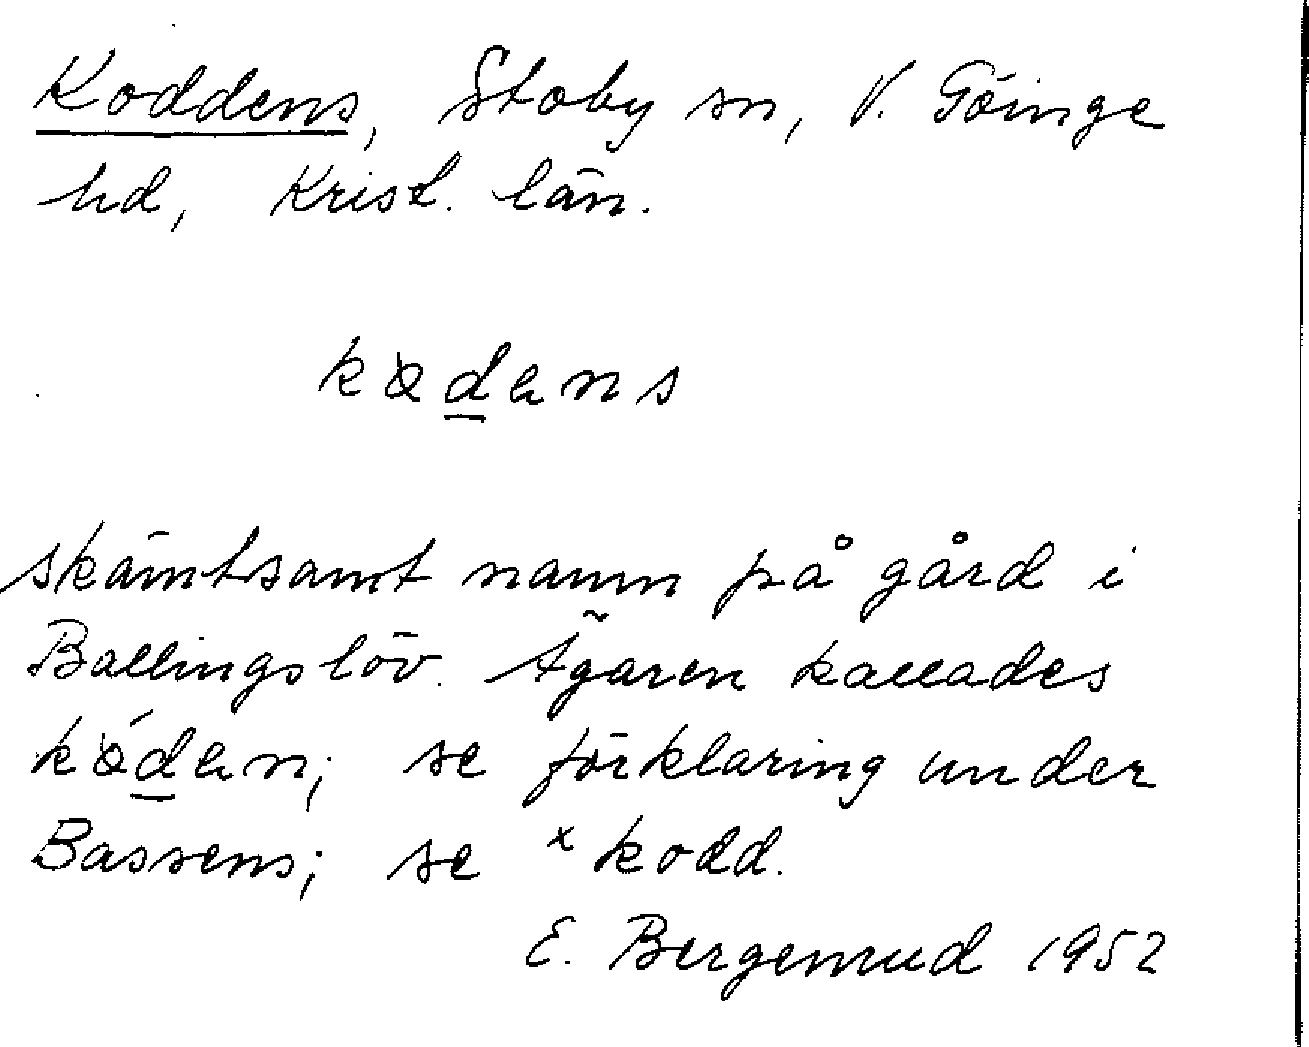 Koddens, Stoby sn, V. Göinge
hd, Krist. län.
kodans
skämtsamt namn på gård i
Ballingslöv. Ägaren kallades
kódan; se förklaring under
Bassens; se ˣkodd.
E. Bergenrud 1952